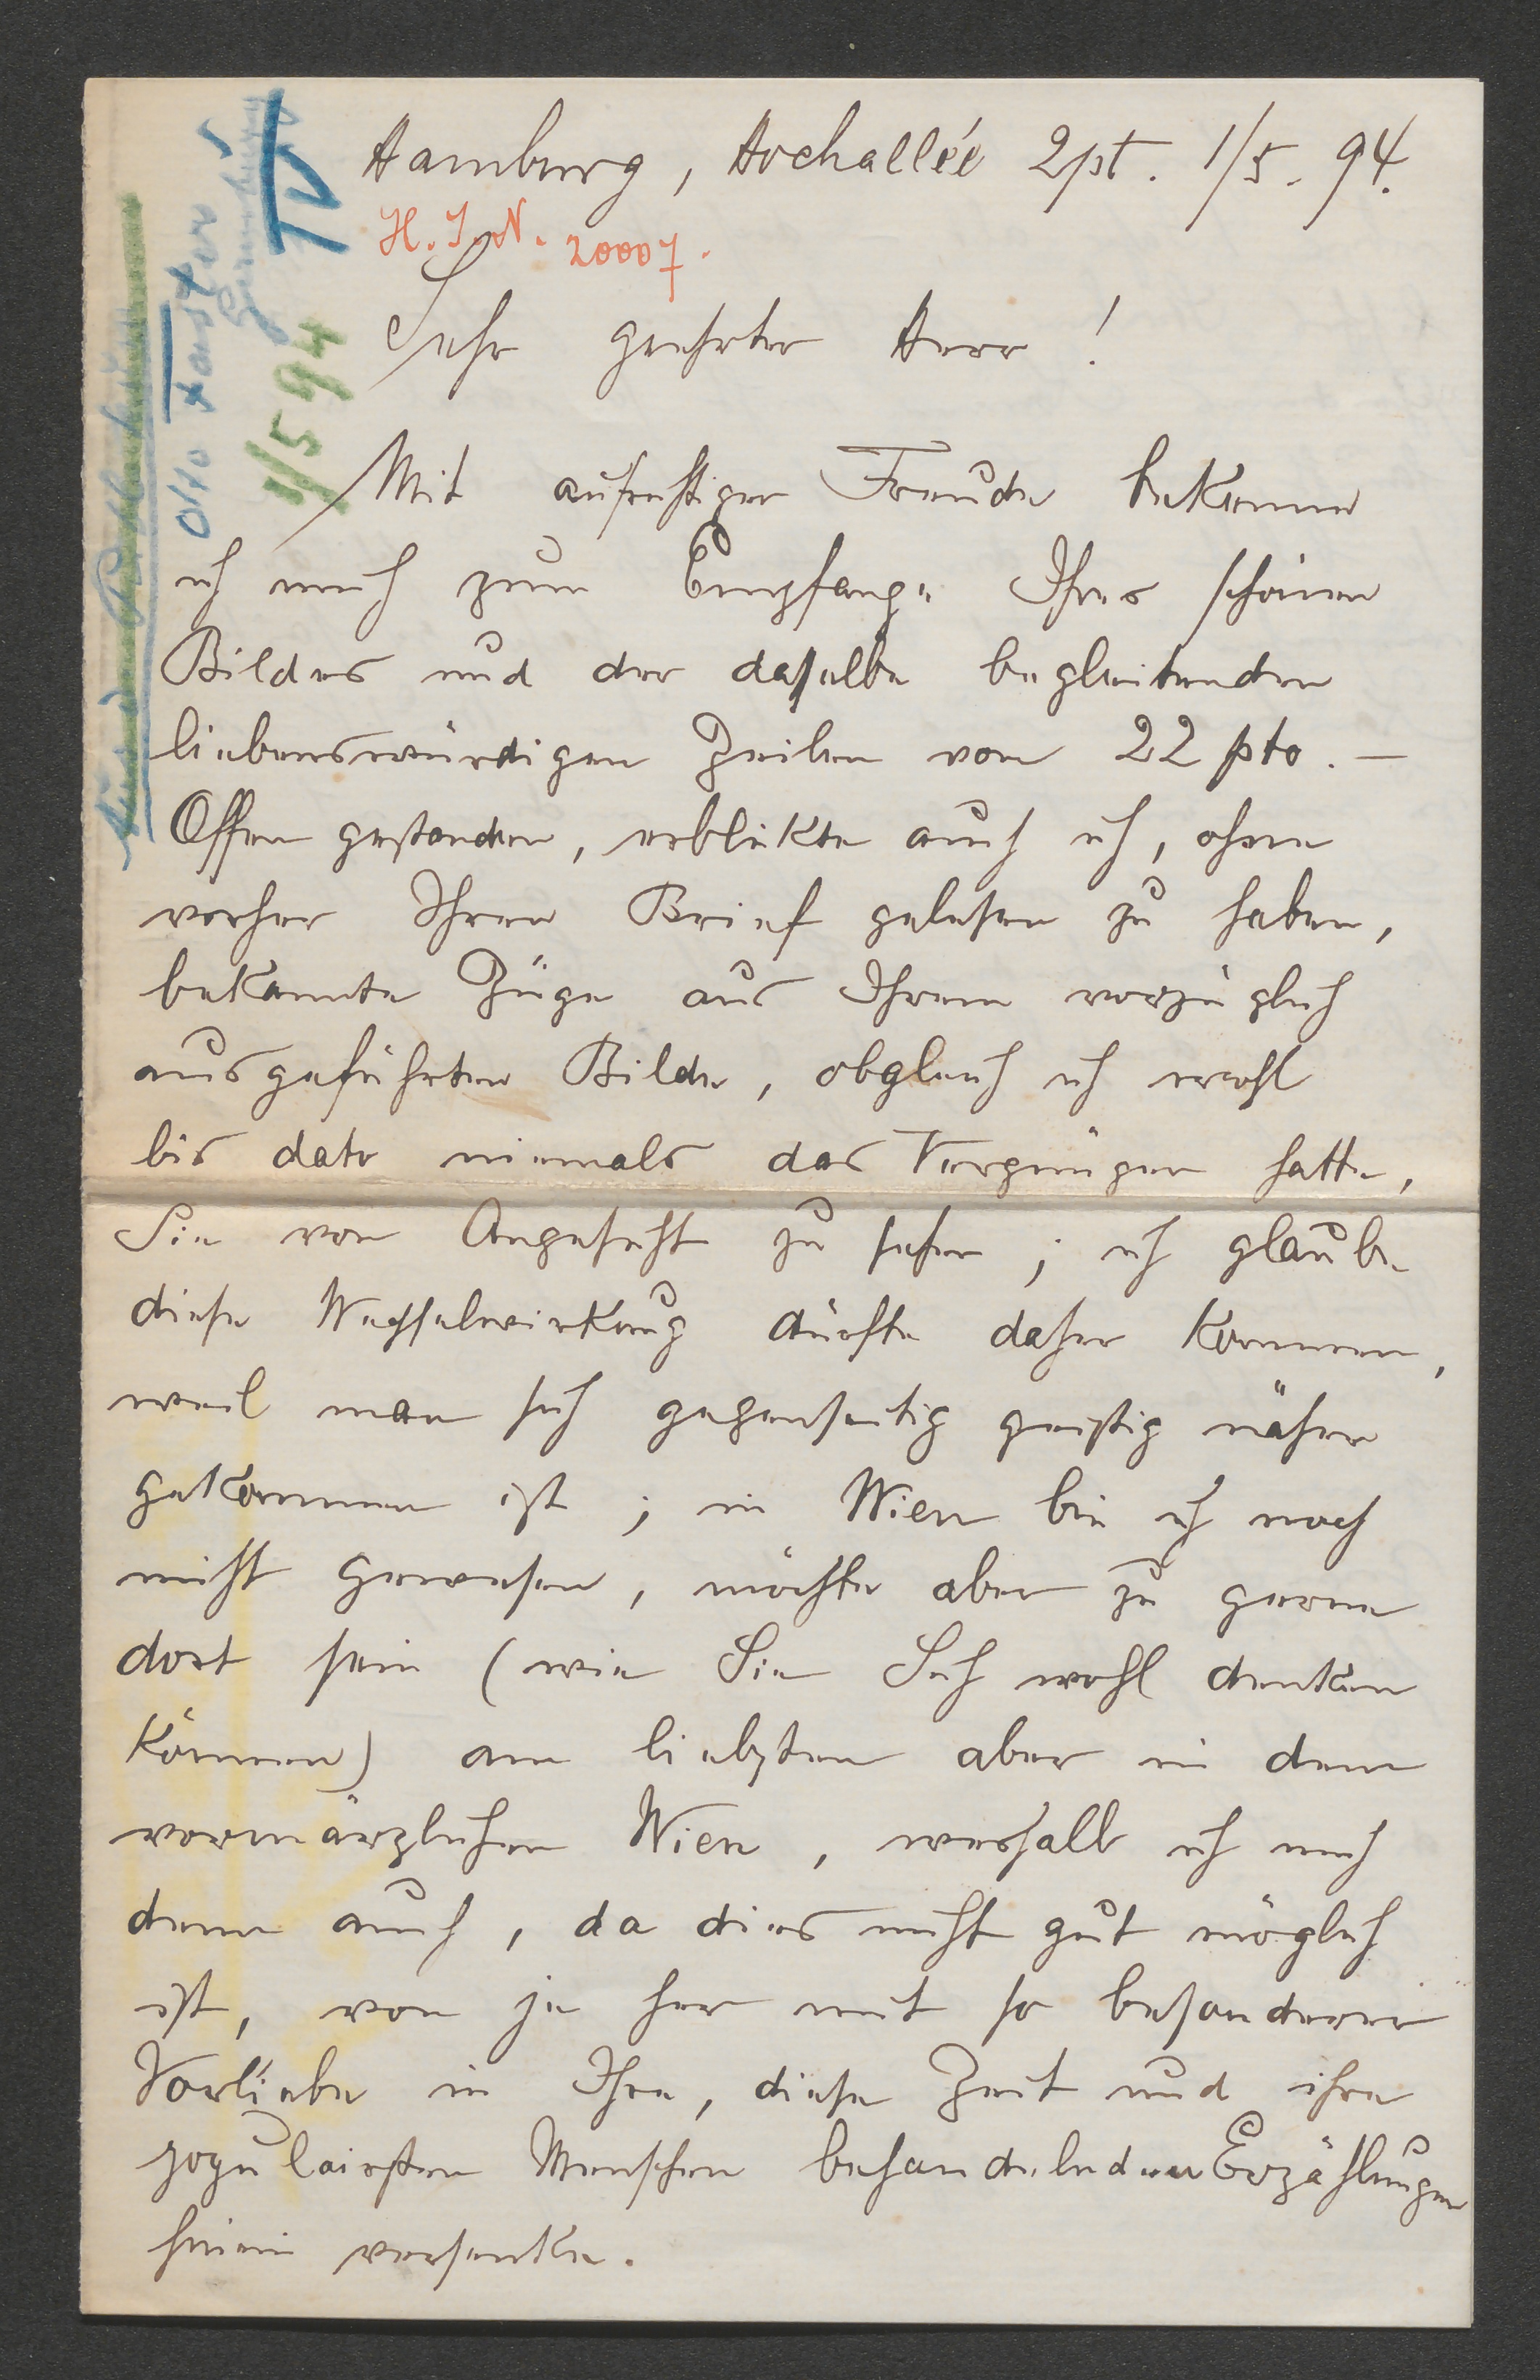 Hamburg, Hochallée 2pt. 1/5. 94.
H. I. N. 20007.
Sehr geehrter Herr!
Mit aufrichtiger Freude bekenne
ich mich zum Empfange Ihres schönen
Bildes und der dasselbe begleitenden
liebenswürdigen Zeilen vom 22 pto. —
Offen gestanden, erblickte auch ich, ohne
vorher Ihren Brief gelesen zu haben,
bekannte Züge aus Ihrem vorzüglich
ausgeführten Bilde, obgleich ich wohl
bis dato niemals das Vergnügen hatte,
Sie von Angesicht zu sehen; ich glaube
diese Wechselwirkung dürfte daher kommen,
weil man sich gegenseitig geistig näher
gekommen ist; in Wien bin ich noch
nicht gewesen, möchte aber zu gerne
dort sein (wie Sie Sich wohl denken
können) am liebsten aber in dem
vormärzlichen Wien, weshalb ich mich
denn auch, da dies nicht gut möglich
ist, von je her mit so besonderer
Vorliebe in Ihre, diese Zeit und ihre
populairsten Menschen behandelnden Erzählungen
hinein versenke.
1/5 94
Otto